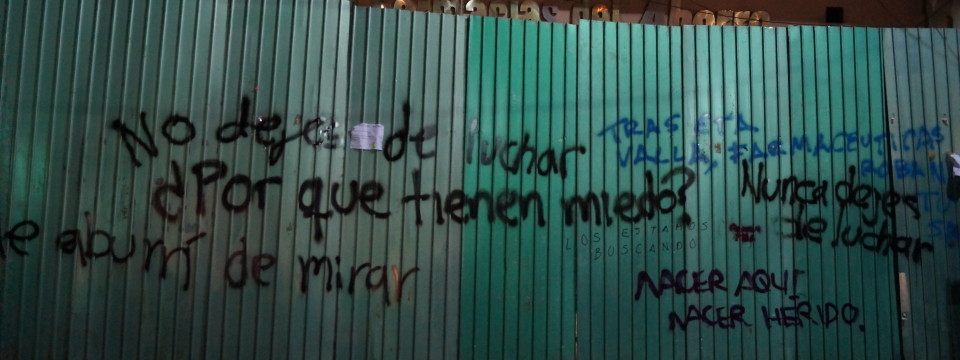 No dejes de luchar
¿Por que tienen miedo?
e aburrí de mirar
TRAS ETA
VALLA, FARMACEUTICAS
ROBAN
TU
Nunca dejes
de luchar
LOS ESTAMOS
BUSCANDO
NACER AQUÍ
NACER HERIDO.